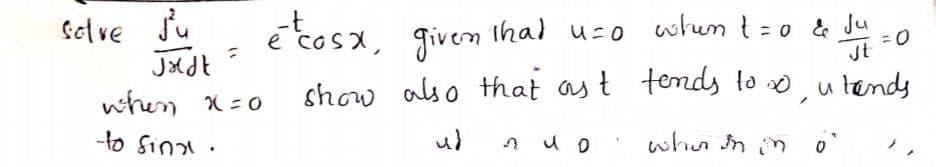 solve ∂²u/∂x∂t = e^-t cosx, given that u=0 when t=0 & ∂u/∂t=0
when x=0 show also that as t tends to ∞, u tends
to sinx.